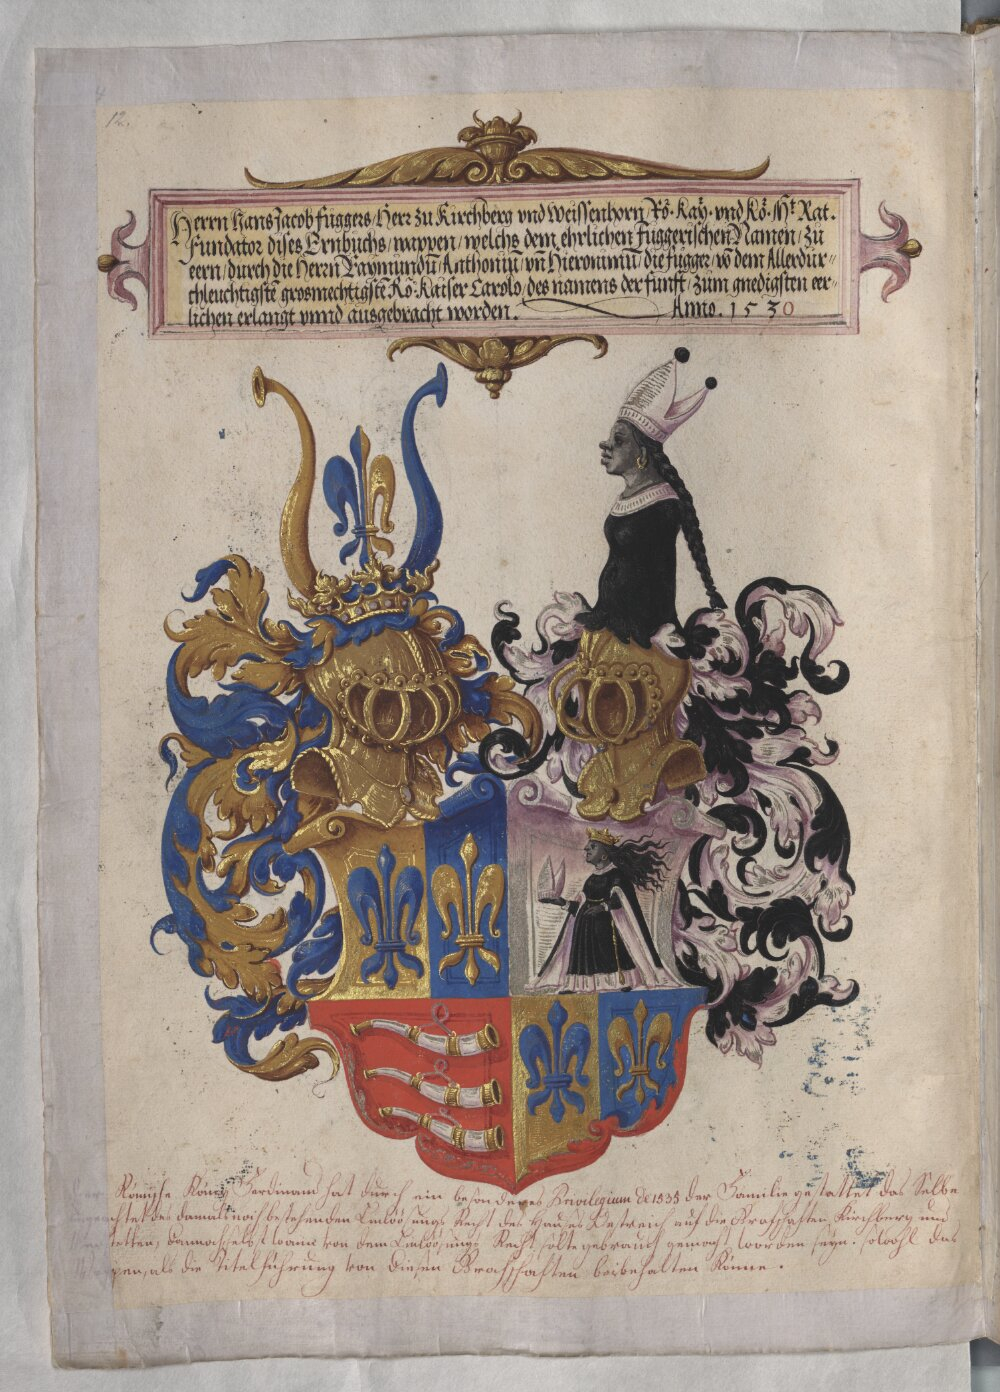 12.
Herrn Hans Jacob Fuggers / Herr zu Kirchberg vnd Weissenhorn / Rö. Kay. vnd Kö. Mt Rat.
Fundator dises Ernbuchs / wappen / welchs dem ehrlichen Fuggerischen Namen / zu
eern / durch die Herrn Raymundū / Anthoniū / vñ Hieronimū / die fugger / võ dem Allerdur=
chleuchtigstē grosmechtigstē Rö. Kaiser Carolo / des namens der funfft / zum gnedigsten eer=
lichen erlangt vnnd ausgebracht worden. Anno. 1530
Römische König Ferdinand hat durch ein besonderes Privilegium de 1535 der Familie gestattet das Selbe
des damals noch bestehenden Einlösungs Recht des Hauses Oestreich auf die Graffschaften Kirchberg und
dannoch selbst wann von dem Einlösungs Recht solte gebrauch gemacht worden seyn: sowohl das
als die Titelführung von diesen Graffschaften beibehalten Könne.